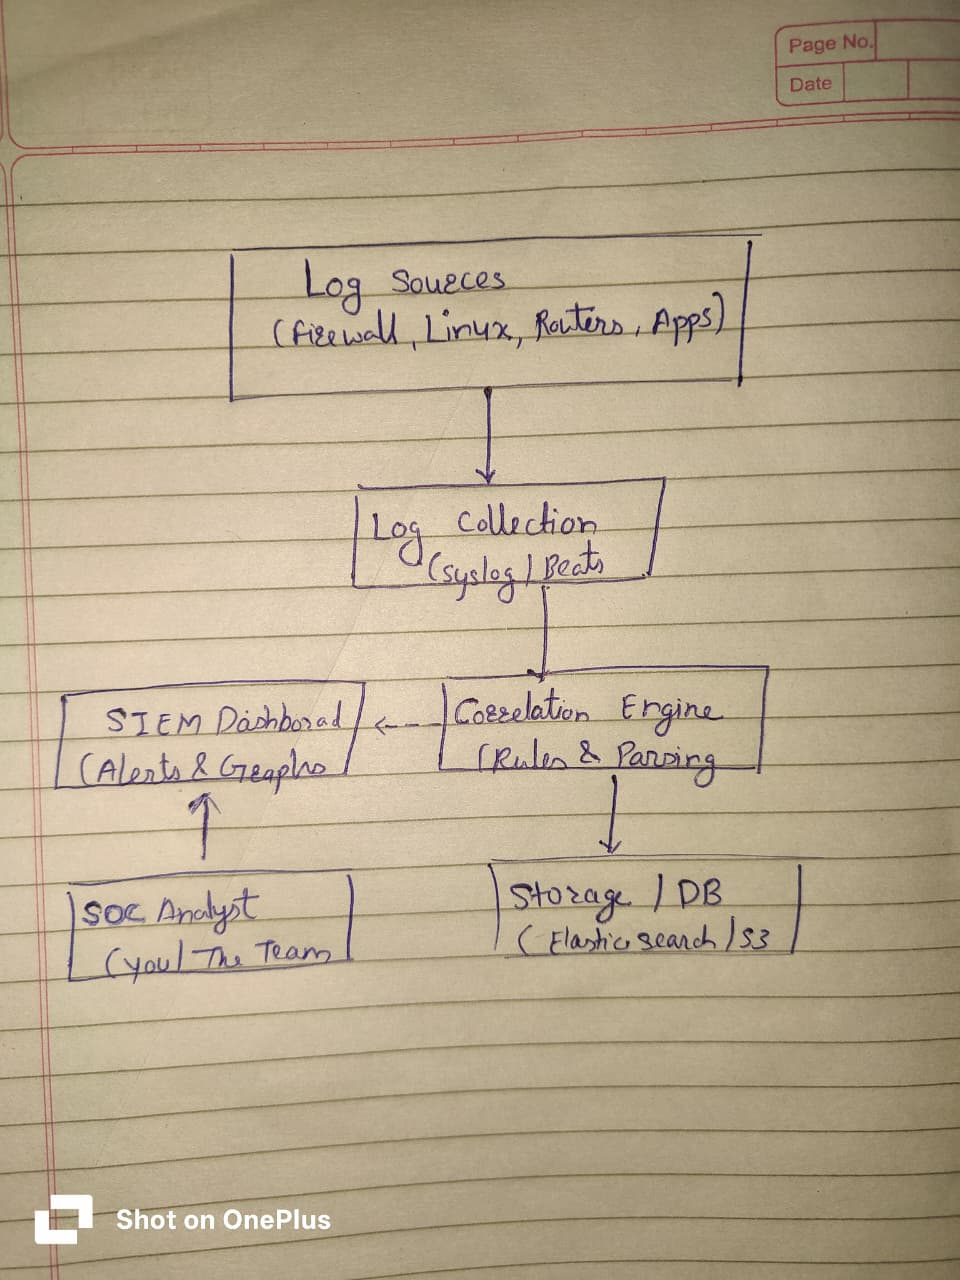 Page No.
Date
Log Sources
(Firewall, Linux, Routers, Apps)
Log Collection
(Syslog / Beats
SIEM Dashborad
(Alerts & Graphs
Correlation Engine
(Rules & Parsing
SOC Analyst
(you/ The Team
Storage / DB
(Elastic search / S3
Shot on OnePlus